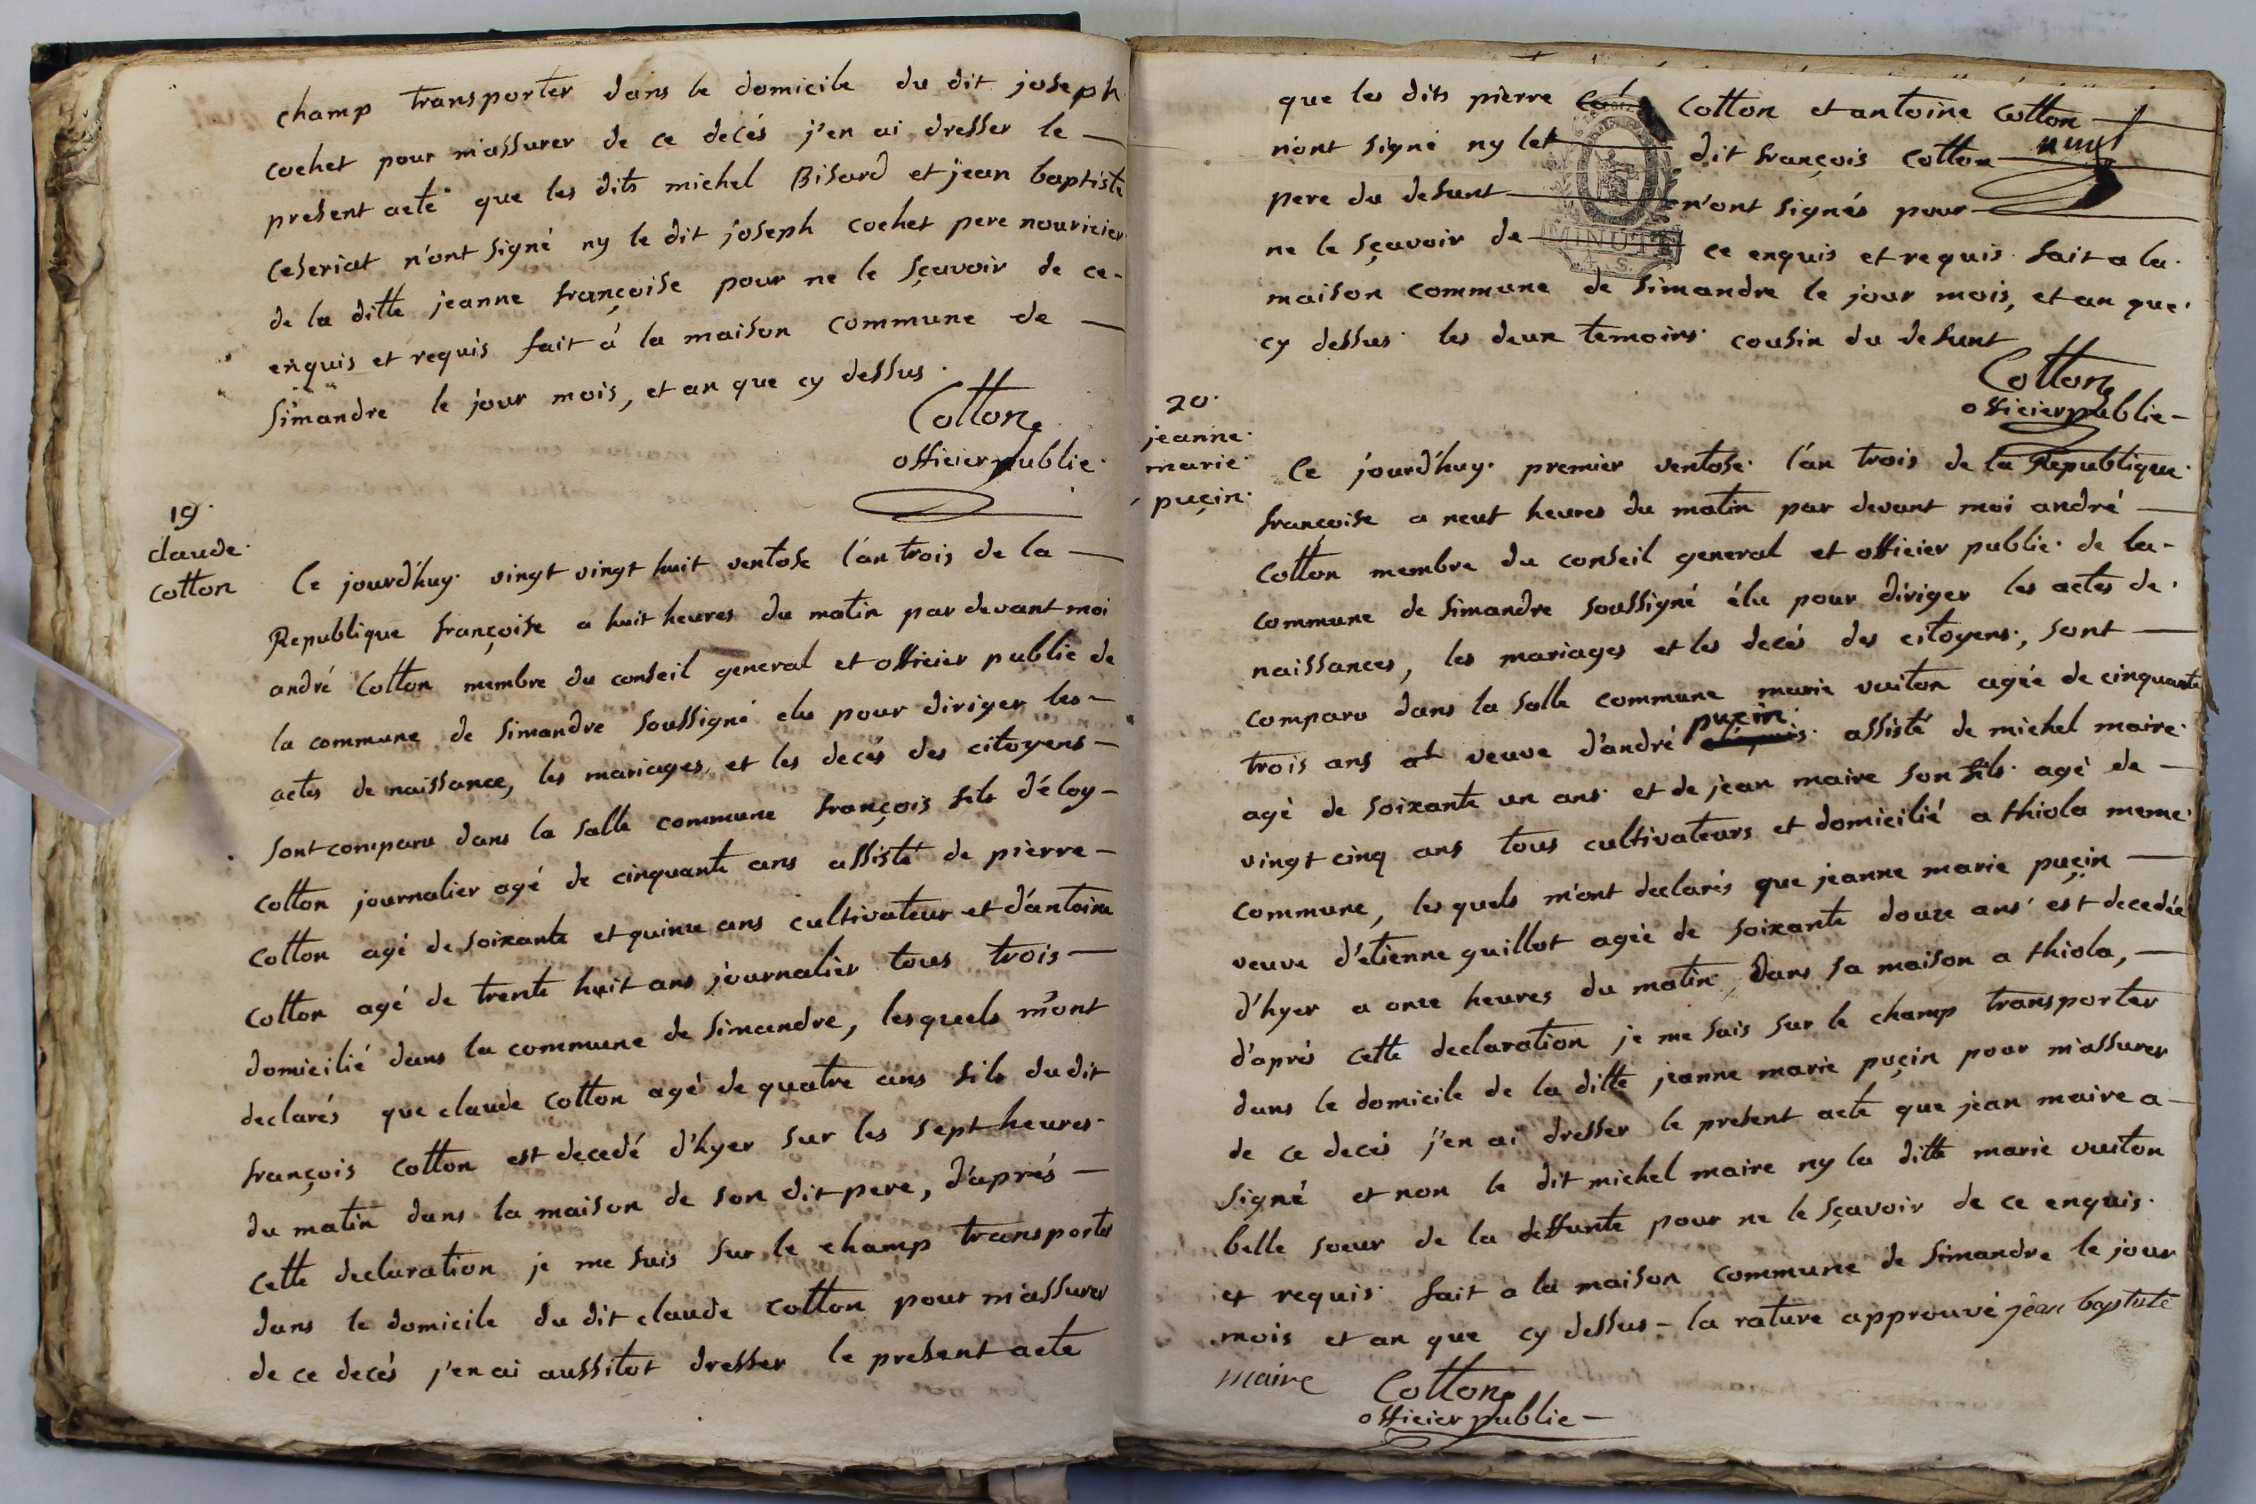 champ transporter dans le domicile du dit joseph
cochet pour m'assurer de ce decés j'en ai dresser le —
present acte que les dits michel Bisard et jean baptiste
ceseriat n'ont signé ny le dit joseph cochet pere nouricier
de la ditte jeanne françoise pour ne le sçavoir de ce-
enquis et requis fait à la maison commune de —
Simandre le jour mois, et an que cy dessus.
Cotton
officier public.
19.
claude.
cotton
Ce jourd'huy. vingt vingt huit ventose l'an trois de la —
Republique françoise a huit heures du matin par devant moi
andré Cotton membre du conseil general et officier public de
la commune de Simandre soussigné elu pour diriger les-
actes de naissance, les mariages, et les decés des citoyens-
sont comparu dans la salle commune françois fils d'éloy-
Cotton journalier agé de cinquante ans assisté de pierre-
Cotton agé de soixante et quinze ans cultivateur et d'antoine
Cotton agé de trente huit ans journalier tous trois —
domicilié dans la commune de Simandre, lesquels m'ont
declarés que claude Cotton agé de quatre ans fils du dit
françois Cotton est decedé d'hyer sur les sept heures.
du matin dans la maison de son dit pere, d'après —
cette declaration je me suis sur le champ transporter
dans le domicile du dit claude Cotton pour m'assurer
de ce decés j'en ai aussitot dresser le present acte
que les dits pierre Cotton et antoine Cotton —
n'ont signé ny let dit françois Cotton —
pere du defunt — n'ont signés pour —
ne le sçavoir de — ce enquis et requis. fait a la.
MINUTE
maison commune de Simandre le jour mois, et an que.
cy dessus. les deux temoins. cousin du defunt
Cotton
officier public -
20.
jeanne.
marie.
puçin.
Ce jourd'huy. premier ventose. l'an trois de la Republique.
françoise a neuf heures du matin par devant moi andré —
Cotton membre du conseil general et officier public. de la-
commune de Simandre soussigné élu pour diriger les actes de.
naissances, les mariages et les decés des citoyens., sont —
comparu dans la salle commune marie vuiton agée de cinquante
trois ans veuve d'andré puçin. assisté de michel maire.
agé de soixante un ans. et de jean maire son fils. agé de —
vingt cinq ans tous cultivateurs et domicilié a thiola meme.
commune, lesquels m'ont declarés que jeanne marie puçin —
veuve d'etienne guillot agée de soixante douze ans est decedée
d'hyer a onze heures du matin, dans sa maison a thiola, —
d'après cette declaration je me suis sur le champ transporter
dans le domicile de la ditte jeanne marie puçin pour m'assurer
de ce decés j'en ai dresser le present acte que jean maire a -
signé et non le dit michel maire ny la ditte marie vuiton
belle soeur de la deffunte pour ne le sçavoir de ce enquis.
et requis. fait a la maison commune de Simandre le jour
mois et an que cy dessus - la rature approuvé jean baptiste
maire Cotton
officier public -